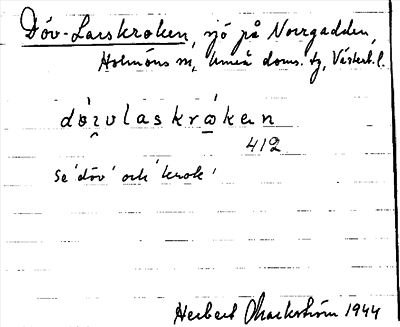 Döv-Larskroken, sjö på Norrgadden,
Holmöns sn, Umeå doms. tg, Västerb. l.
dø̀ɪvlaskrǿken
412
Se 'döv' och 'krok'
Herbert Markström 1944